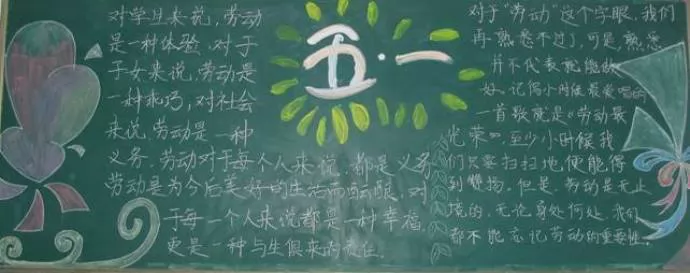 对学生来说，劳动
是一种体验，对于
子女来说，劳动是
一种乖巧，对社会
来说，劳动是一种
义务，劳动对于每个人来说，都是义务
劳动是为今后美好的生活而，对
于每一个人来说都是一种幸福，
更是一种与生俱来的责任。
五·一
对于“劳动”这个字眼，我们
再熟悉不过，可是，熟悉
并不代表就能做
好。记得小时候最爱唱的
一首歌就是“劳动最
光荣”至少小时候我
们只要扫扫地便能得
到赞扬。但是，劳动是无止
境的，无论身处何处，我们
都不能忘记劳动的重要性。